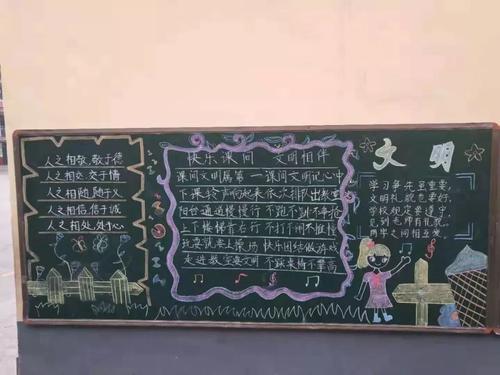 人之相敬,敬于德
人之相交,交于情
人之相随,随于义
人之相信,信于诚
人之相处,处于心
快乐课间 文明相伴
课间文明属第一 课间文明记心中
下课铃声响起来 依次排队出教室
阳台通道慢慢行 不跑不跳不争抢
上下楼梯靠右行 不打不闹不推撞
玩耍就要上操场 快乐团结做游戏
走进教室要文明
文明
学习争先至重要,
文明礼貌也要好,
学校规定要遵守,
见到老师有礼貌,
同学之间相互爱